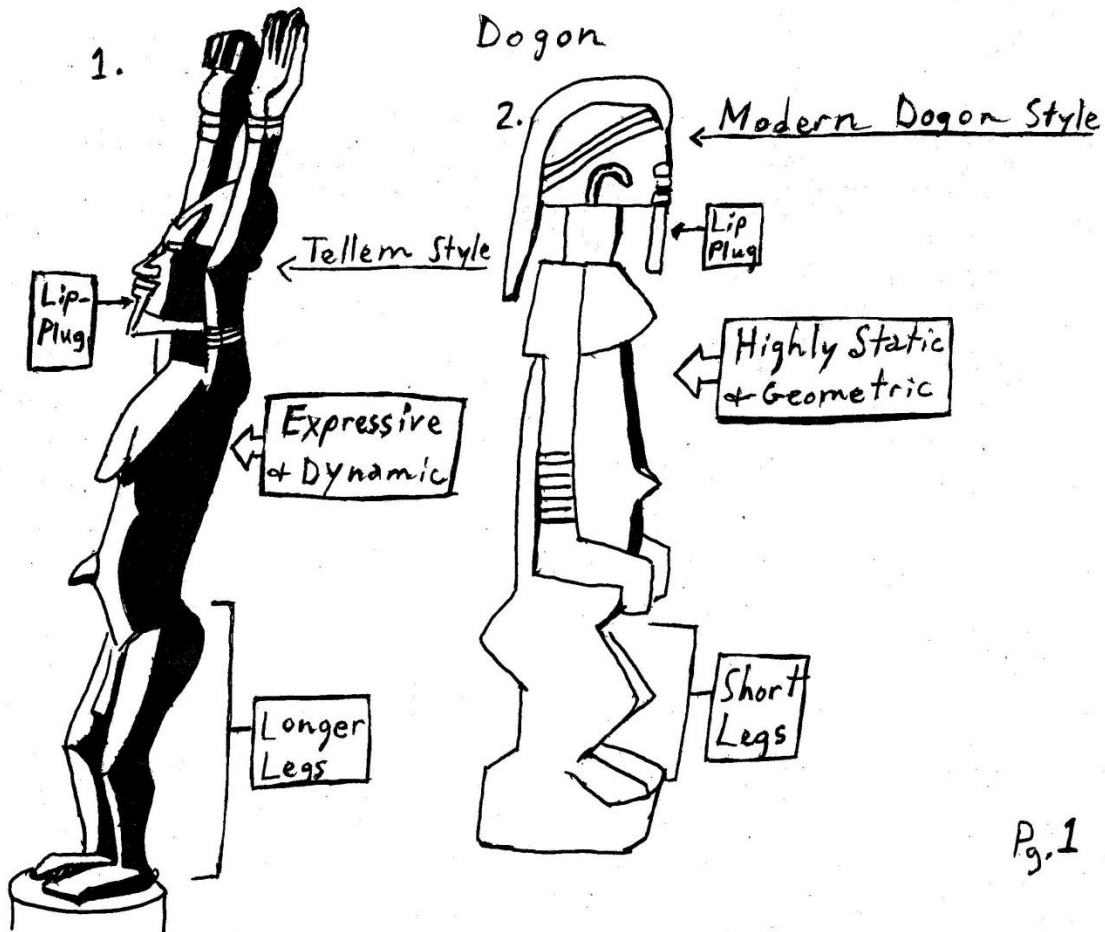 Dogon
1.
Tellem Style
Lip-
Plug
Expressive
& Dynamic
Longer
Legs
2.
Modern Dogon Style
Lip
Plug
Highly Static
& Geometric
Short
Legs
Pg. 1